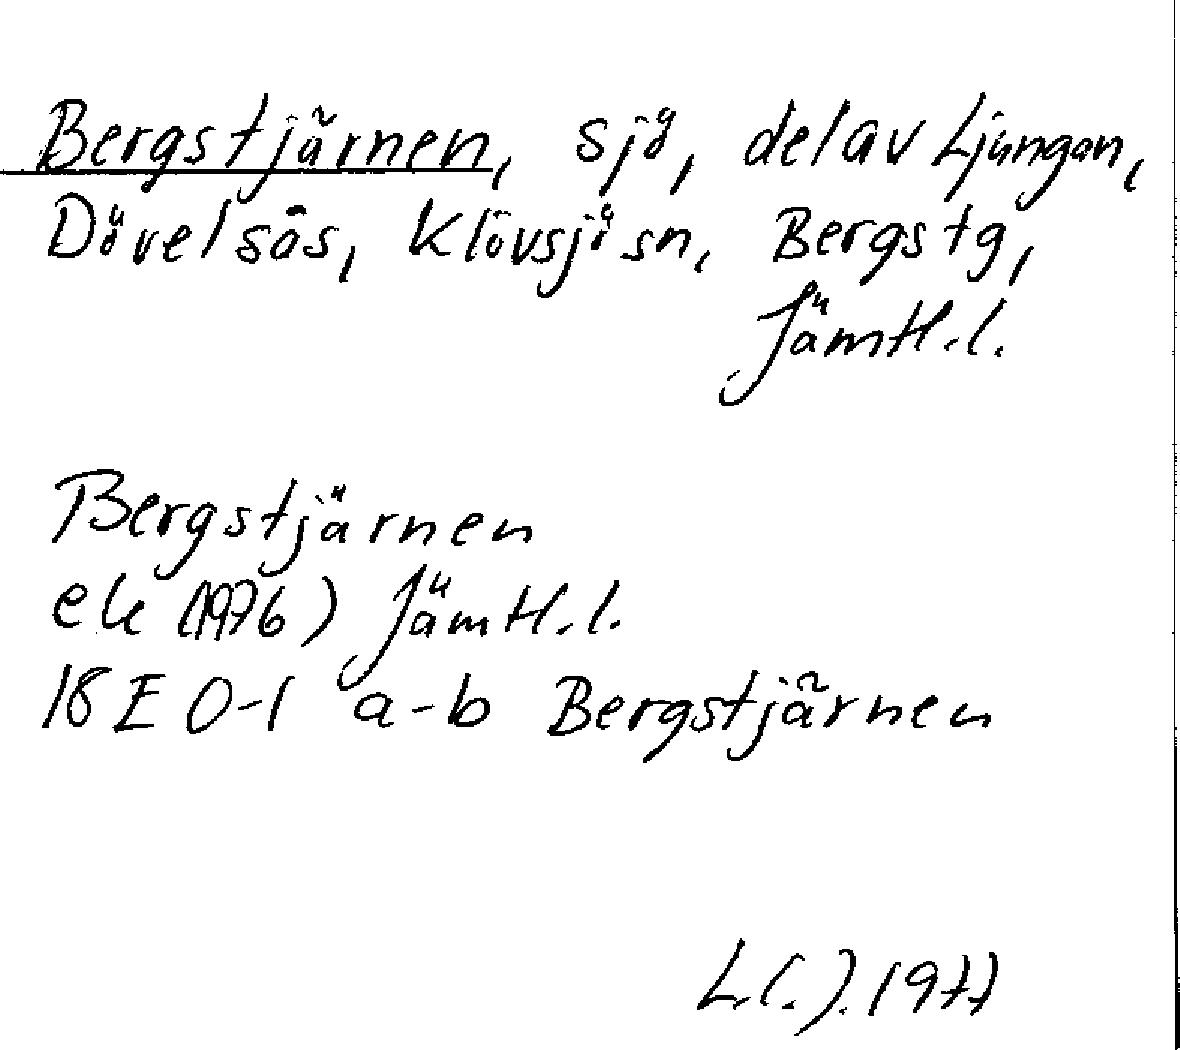 Bergstjärnen, sjö, del av Ljungan,
Dövelsås, Klövsjö sn, Bergs tg,
Jämtl.l.
Bergstjärnen
ek (1976) Jämtl.l.
18E 0-1 a-b Bergstjärnen
L.C.J. 1977